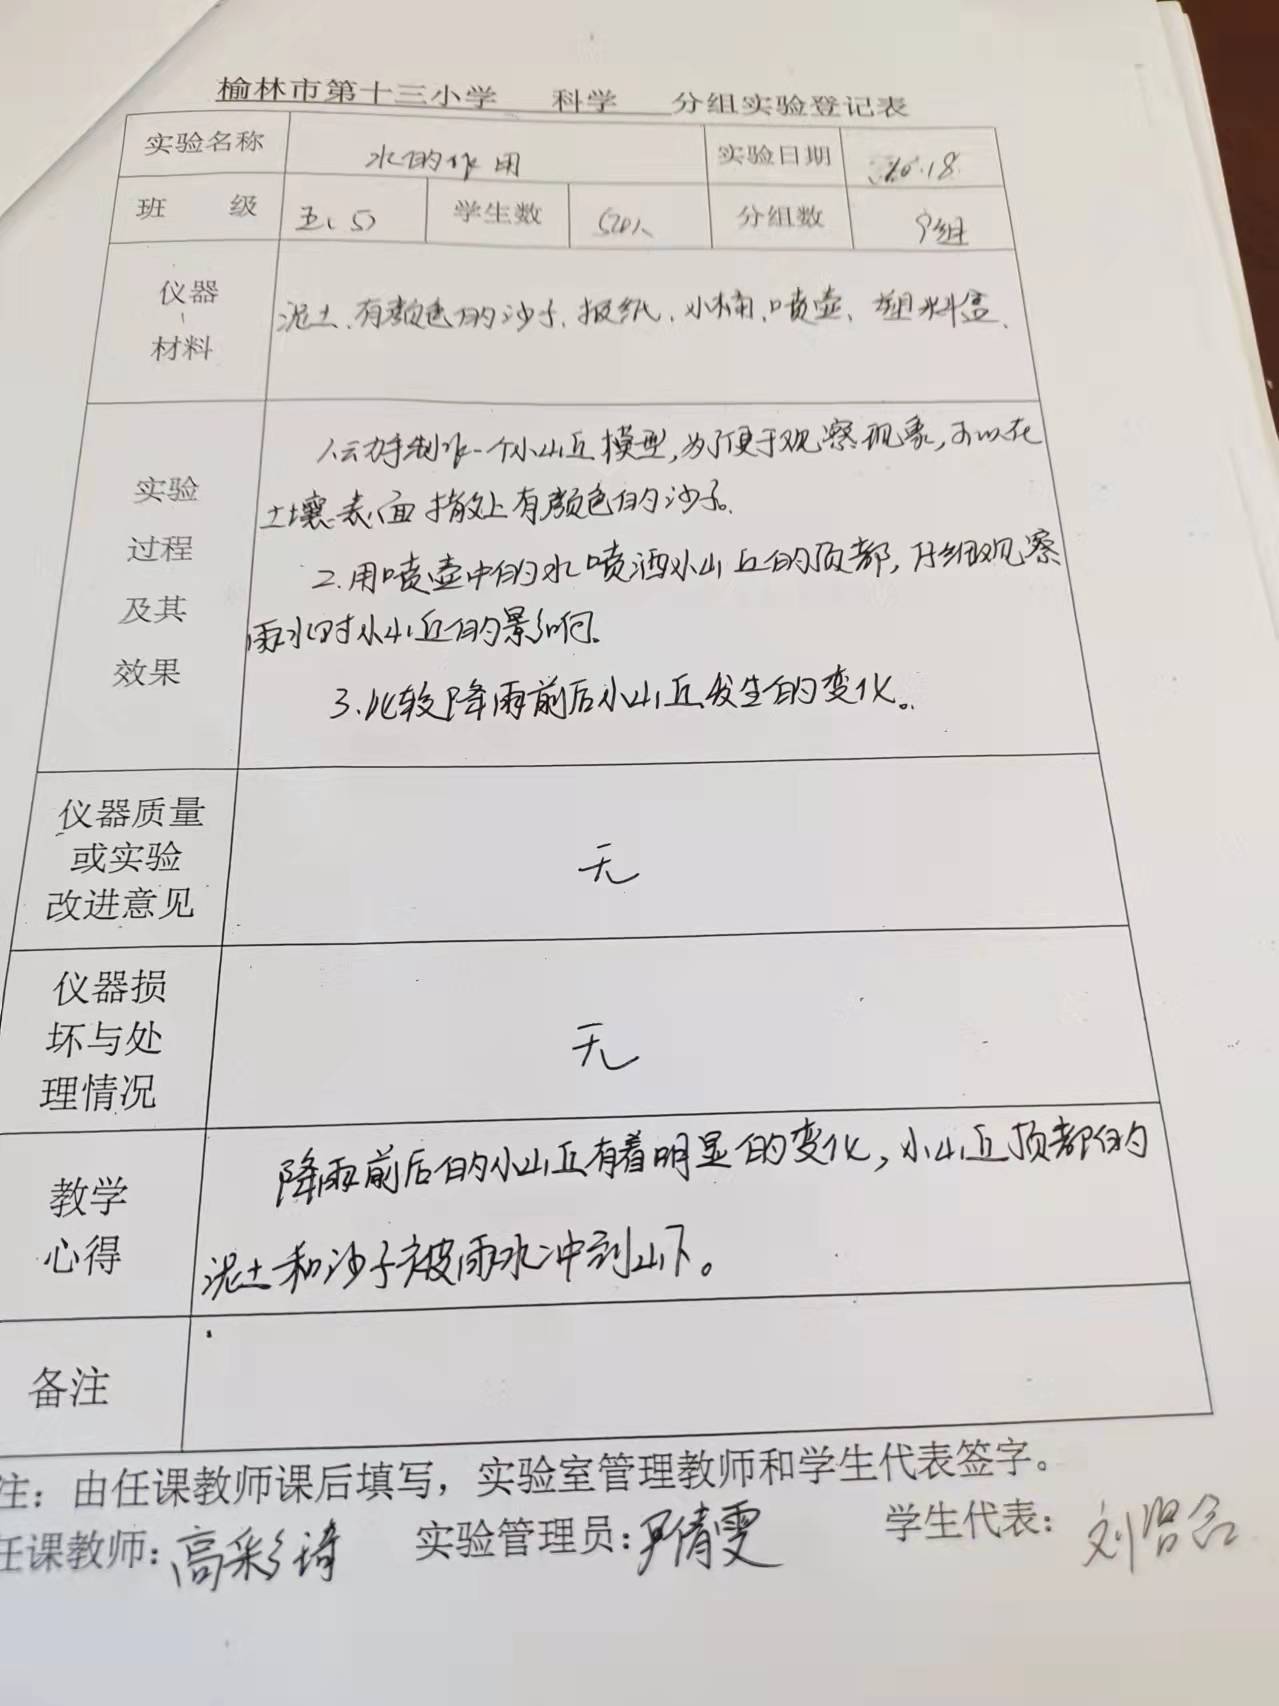 榆林市第十三小学 科学 分组实验登记表
实验名称 水的作用 实验日期 10.18
班 级 五(5) 学生数 50人 分组数 9组
仪器
、
材料
泥土、有颜色的沙子、报纸、小桶、喷壶、塑料盒、
实验
过程
及其
效果
1.动手制作一个小山丘模型,为了便于观察现象,可以在
土壤表面撒上有颜色的沙子。
2.用喷壶中的水喷洒小山丘的顶部,仔细观察
雨水对小山丘的影响。
3.比较降雨前后小山丘发生的变化。
仪器质量
或实验
改进意见
无
仪器损
坏与处
理情况
无
教学
心得
降雨前后的小山丘有着明显的变化,小山丘顶部的
泥土和沙子被雨水冲到山下。
备注
注：由任课教师课后填写，实验室管理教师和学生代表签字。
任课教师：高彩琦 实验管理员：尹倩雯 学生代表：刘